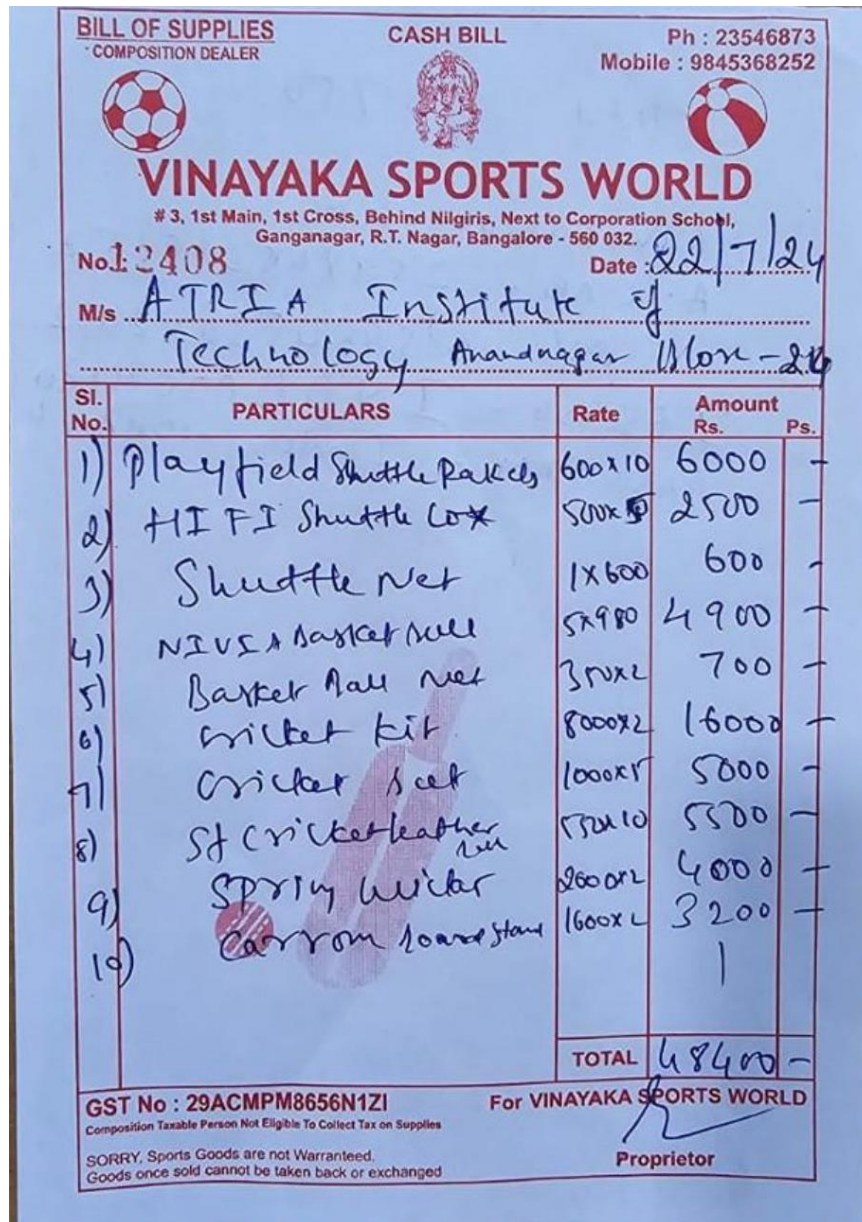 BILL OF SUPPLIES CASH BILL Ph : 23546873
COMPOSITION DEALER Mobile : 9845368252
VINAYAKA SPORTS WORLD
# 3, 1st Main, 1st Cross, Behind Nilgiris, Next to Corporation School,
Ganganagar, R.T. Nagar, Bangalore - 560 032.
No. 12408 Date : 22/7/24
M/s ATRIA Institute of
Technology Anandnagar Blore - 24
Sl. No. PARTICULARS Rate Amount Rs. Ps.
1) Playfield Shuttle Rakets 600x10 6000 -
2) HI FI Shuttle Cox 500x5 2500 -
3) Shuttle Net 1x600 600 -
4) NIVIA Basket Ball 5x980 4900 -
5) Basket Ball Net 350x2 700 -
6) Cricket Kit 8000x2 16000 -
7) Cricket 1000x5 5000 -
8) St Cricket leather Ball 550x10 5500 -
9) Spring Wicket 2000x2 4000 -
10) Carrom Board Stand 1600x2 3200 -
TOTAL 48400 -
GST No : 29ACMPM8656N1ZI For VINAYAKA SPORTS WORLD
Composition Taxable Person Not Eligible To Collect Tax on Supplies
SORRY, Sports Goods are not Warranteed.
Goods once sold cannot be taken back or exchanged
Proprietor